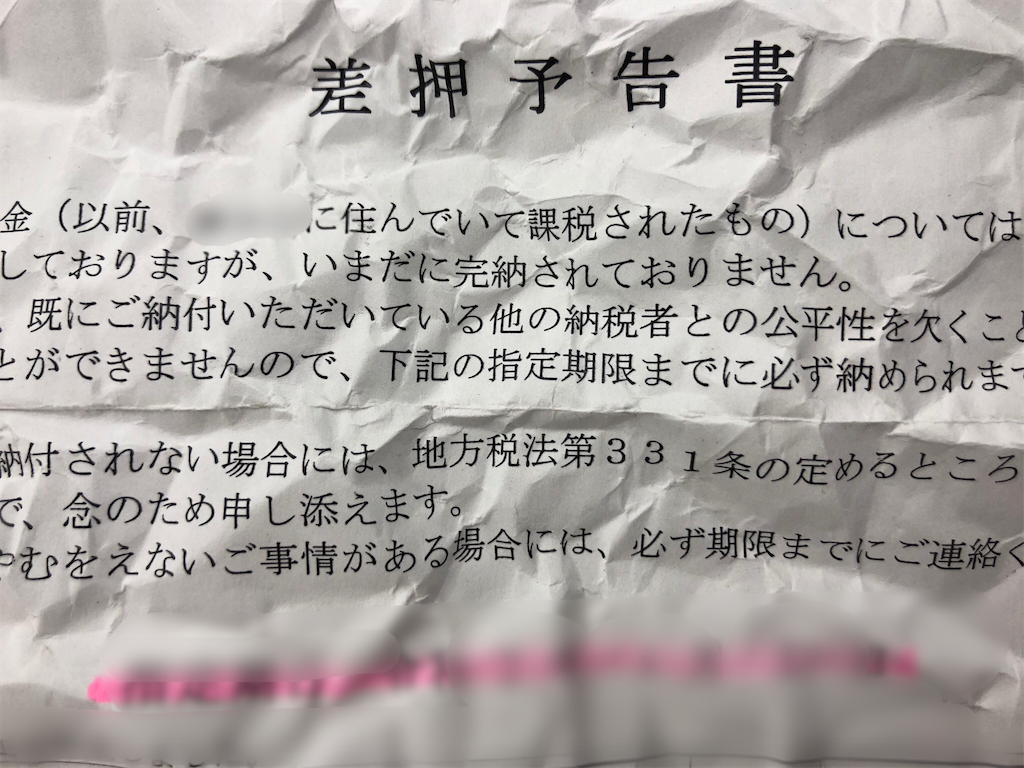 差押予告書
金（以前、に住んでいて課税されたもの）については
しておりますが、いまだに完納されておりません。
、既にご納付いただいている他の納税者との公平性を欠くこと
とができませんので、下記の指定期限までに必ず納められます
納付されない場合には、地方税法第３３１条の定めるところ
で、念のため申し添えます。
やむをえないご事情がある場合には、必ず期限までにご連絡く